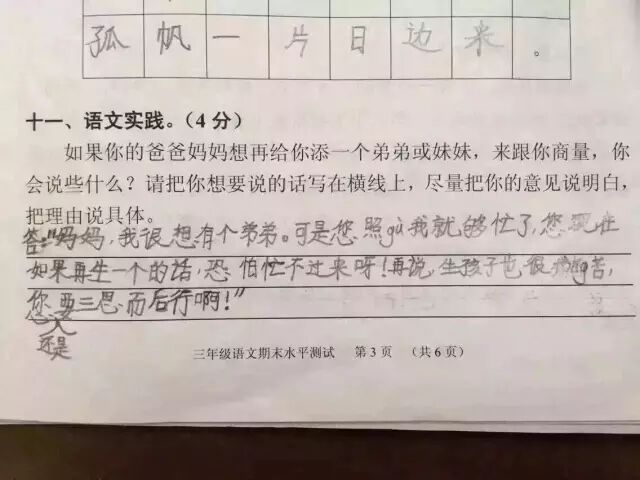 孤帆一片日边来。
十一、语文实践。（4分）
如果你的爸爸妈妈想再给你添一个弟弟或妹妹，来跟你商量，你
会说些什么？请把你想要说的话写在横线上，尽量把你的意见说明白，
把理由说具体。
答："妈妈，我很想有个弟弟。可是您照gù我就够忙了，您现在
如果再生一个的话，恐怕忙不过来呀！再说，生孩子也很痛苦，
您要三思而后行啊！"
还是
三年级语文期末水平测试 第3页 （共6页）